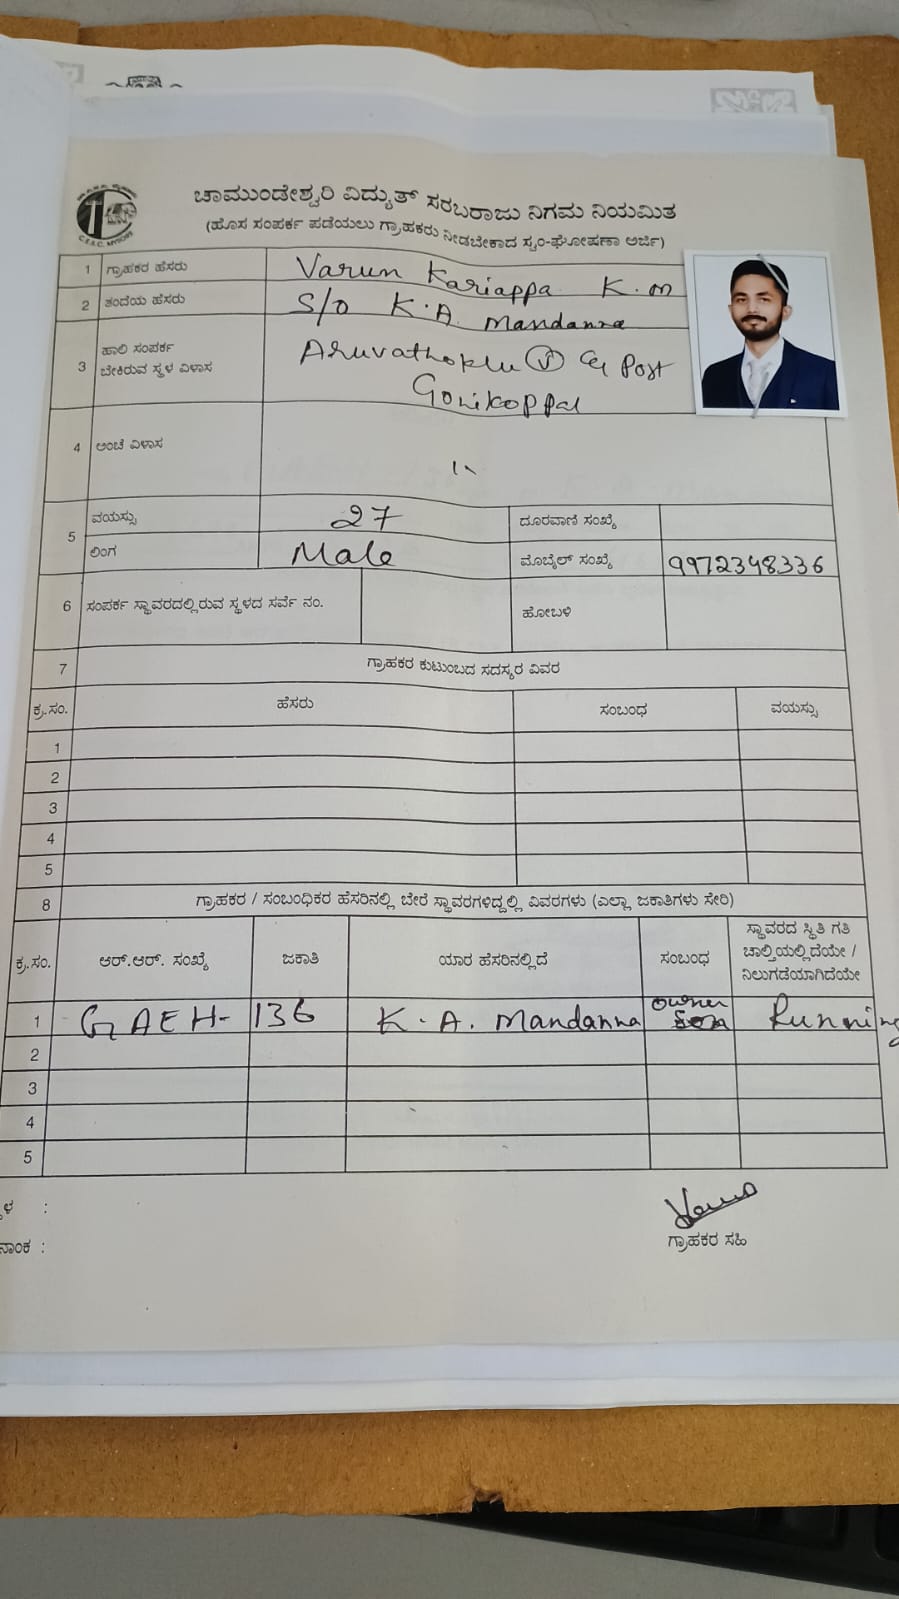 C.E.S.C. MYSORE
ಚಾಮುಂಡೇಶ್ವರಿ ವಿದ್ಯುತ್ ಸರಬರಾಜು ನಿಗಮ ನಿಯಮಿತ
(ಹೊಸ ಸಂಪರ್ಕ ಪಡೆಯಲು ಗ್ರಾಹಕರು ನೀಡಬೇಕಾದ ಸ್ವಂ-ಘೋಷಣಾ ಅರ್ಜಿ)
1 ಗ್ರಾಹಕರ ಹೆಸರು Varun Kariappa K.m
2 ತಂದೆಯ ಹೆಸರು S/o K.A. Mandanna
3 ಹಾಲಿ ಸಂಪರ್ಕ ಬೇಕಿರುವ ಸ್ಥಳ ವಿಳಾಸ Aruvathoklu (V) & Post
Gonikoppal
4 ಅಂಚೆ ವಿಳಾಸ
5 ವಯಸ್ಸು 27 ದೂರವಾಣಿ ಸಂಖ್ಯೆ
ಲಿಂಗ Male ಮೊಬೈಲ್ ಸಂಖ್ಯೆ 9972348336
6 ಸಂಪರ್ಕ ಸ್ಥಾವರದಲ್ಲಿರುವ ಸ್ಥಳದ ಸರ್ವೆ ನಂ. ಹೋಬಳಿ
7 ಗ್ರಾಹಕರ ಕುಟುಂಬದ ಸದಸ್ಯರ ವಿವರ
ಕ್ರ.ಸಂ. ಹೆಸರು ಸಂಬಂಧ ವಯಸ್ಸು
1
2
3
4
5
8 ಗ್ರಾಹಕರ / ಸಂಬಂಧಿಕರ ಹೆಸರಿನಲ್ಲಿ ಬೇರೆ ಸ್ಥಾವರಗಳಿದ್ದಲ್ಲಿ ವಿವರಗಳು (ಎಲ್ಲಾ ಜಕಾತಿಗಳು ಸೇರಿ)
ಕ್ರ.ಸಂ. ಆರ್.ಆರ್. ಸಂಖ್ಯೆ ಜಕಾತಿ ಯಾರ ಹೆಸರಿನಲ್ಲಿದೆ ಸಂಬಂಧ ಸ್ಥಾವರದ ಸ್ಥಿತಿ ಗತಿ
ಚಾಲ್ತಿಯಲ್ಲಿದೆಯೇ /
ನಿಲುಗಡೆಯಾಗಿದೆಯೇ
1 GAEH- 136 K.A. Mandanna owner Running
2
3
4
5
ಳ :
ನಾಂಕ :
ಗ್ರಾಹಕರ ಸಹಿ